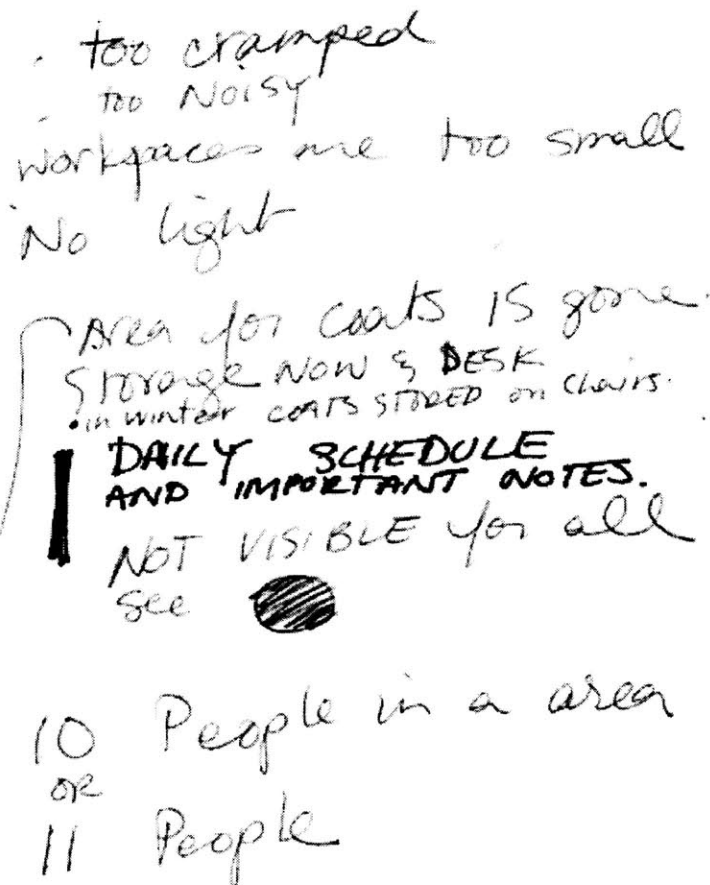 . too cramped
. too NOISY
workspaces are too small
. No light
Area for coats is gone.
Storage NOW & DESK
. in winter COATS STORED on chairs.
DAILY SCHEDULE
AND IMPORTANT NOTES.
NOT VISIBLE for all
see
10 People in a area
OR
11 People